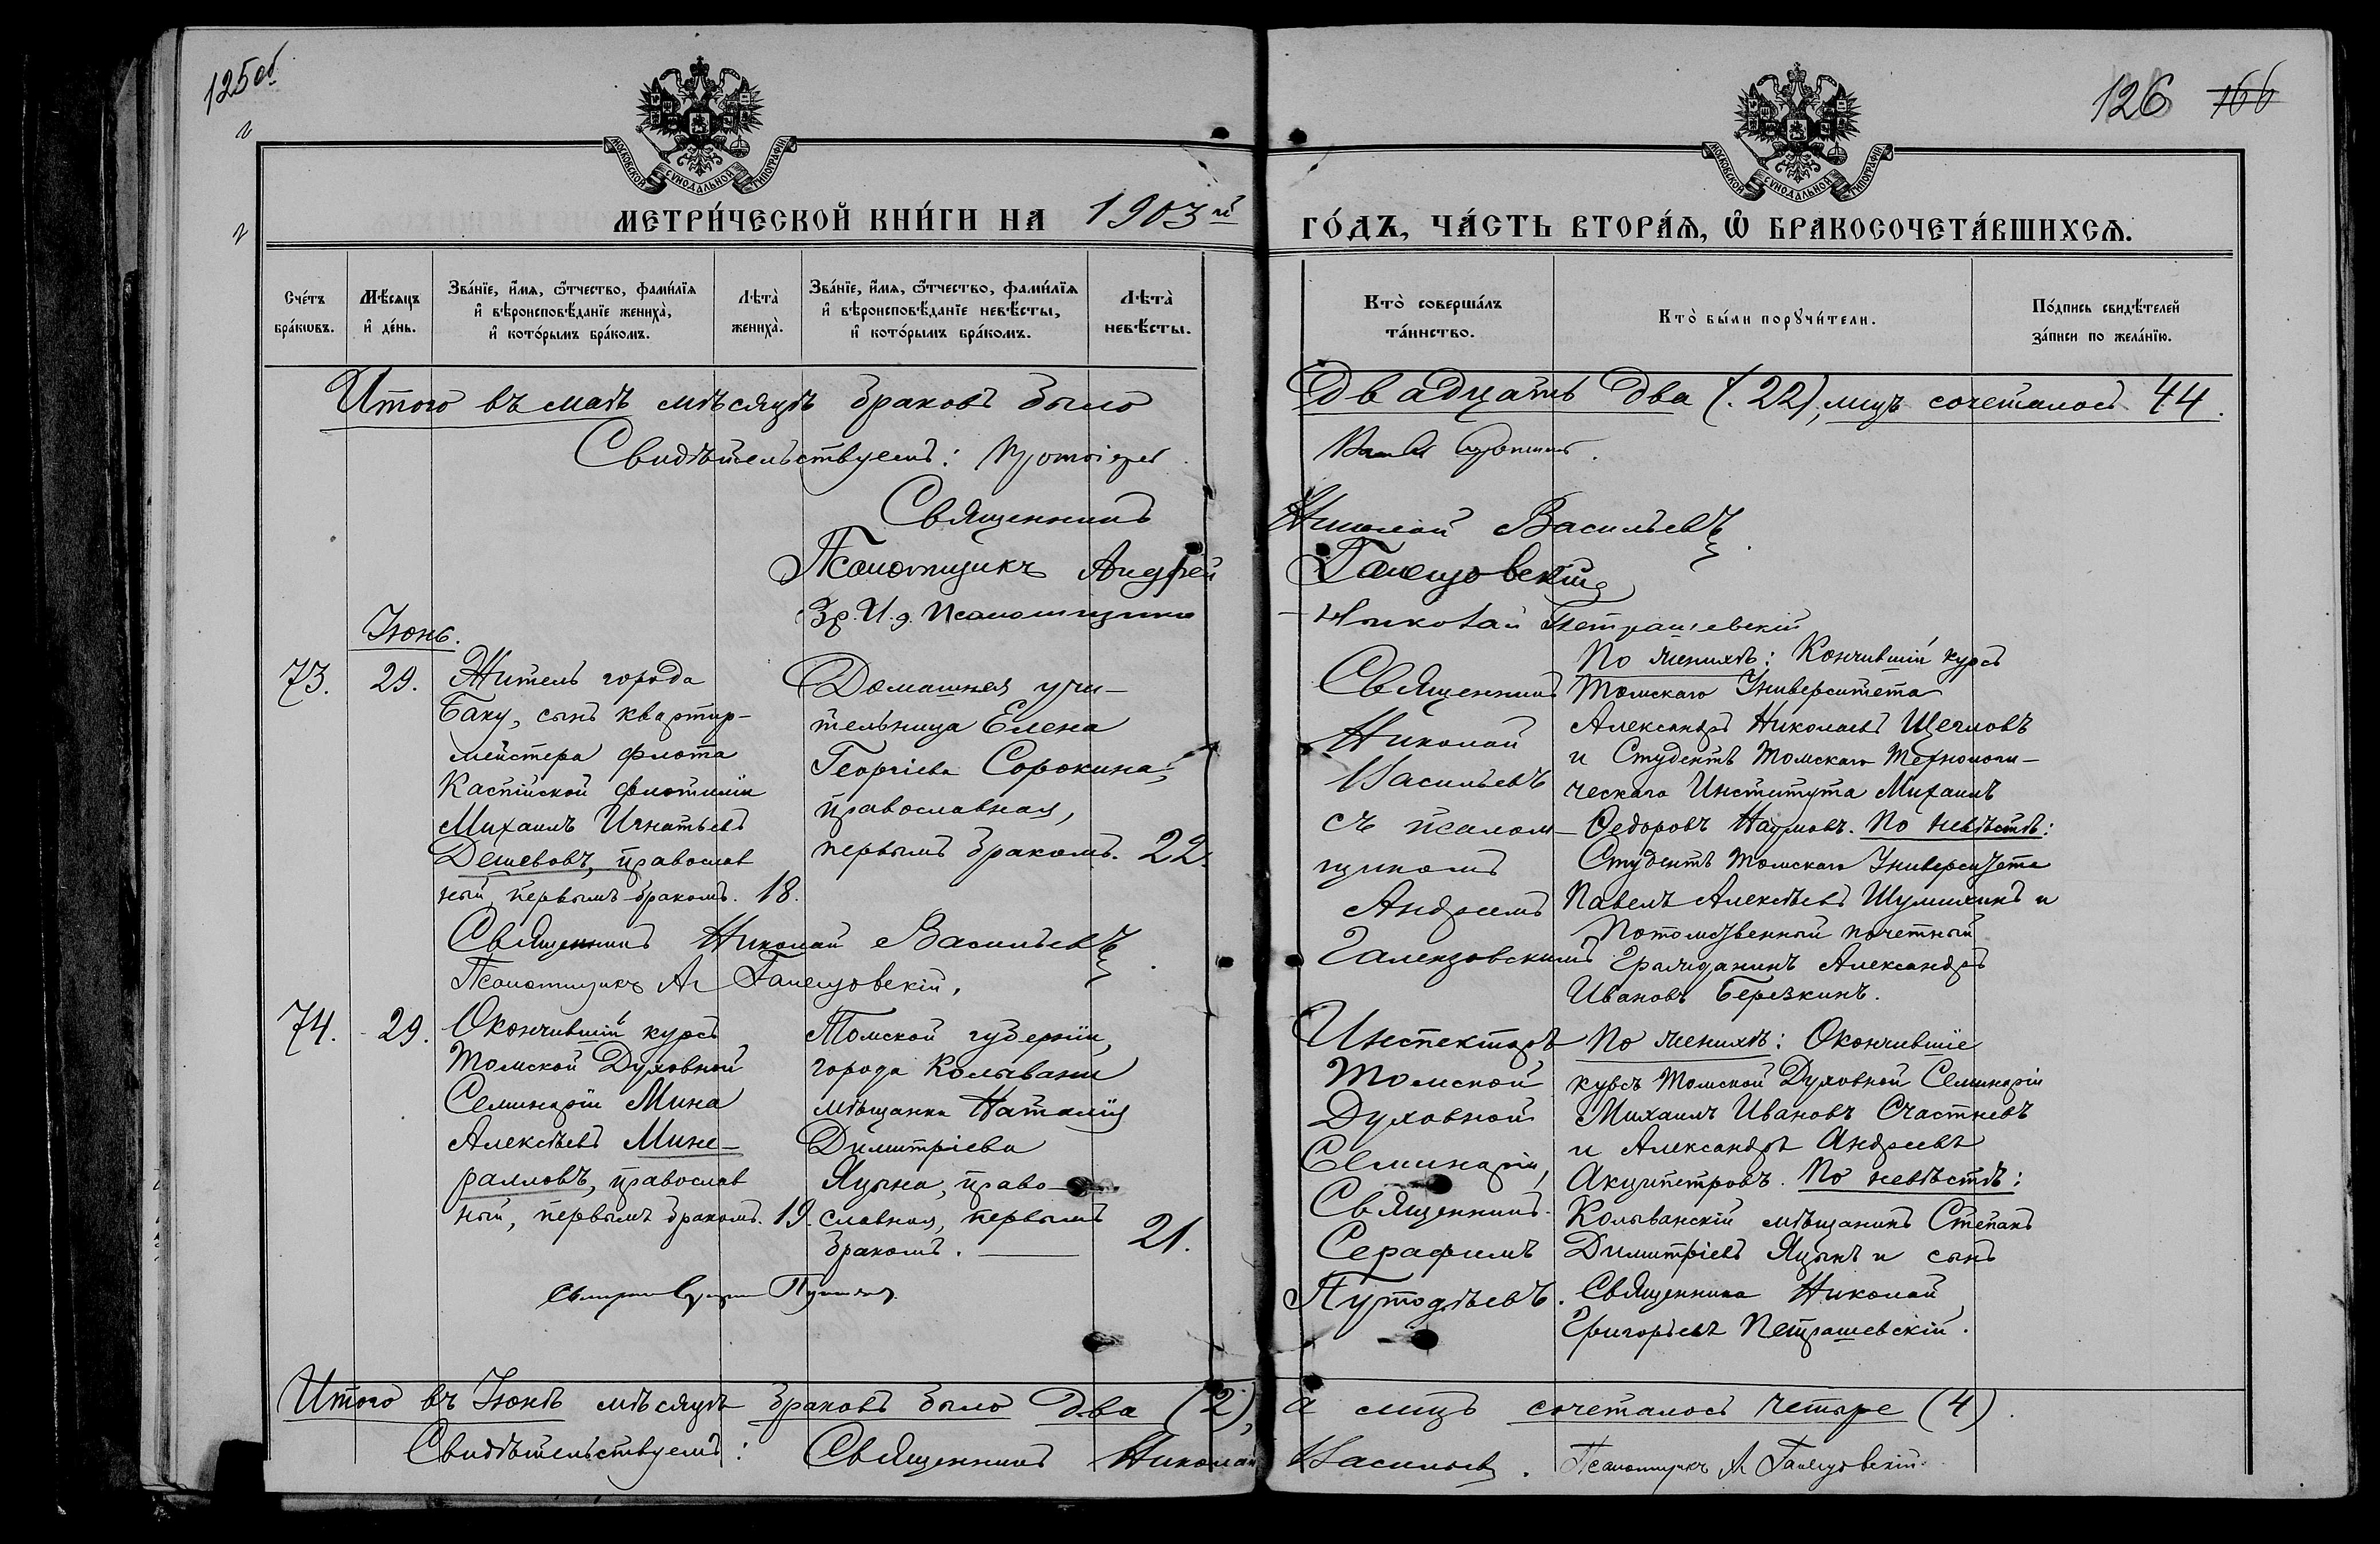 125об
126 166
МОСКОВСКОЙ СѴНОДАЛЬНОЙ ТИПОГРАФІИ
МОСКОВСКОЙ СѴНОДАЛЬНОЙ ТИПОГРАФІИ
МЕТРИ́ЧЕСКОЙ КНИ́ГИ НА 1903й ГО́ДЪ, ЧА́СТЬ ВТОРА́Ѧ, Ѡ҆ БРАКОСОЧЕТА́ВШИХСѦ.
Сче́тъ бра́кѡвъ.
Мѣ́сѧцъ и҆ де́нь.
Зва́нїе, и҆́мѧ, ѻ҆́тчество, фами́лїѧ и҆ вѣроисповѣ́данїе жениха̀, и҆ кото́рымъ бра́комъ.
Лѣта̀ жениха̀.
Зва́нїе, и҆́мѧ, ѻ҆́тчество, фами́лїѧ и҆ вѣроисповѣ́данїе невѣ́сты, и҆ кото́рымъ бра́комъ.
Лѣта̀ невѣ́сты.
Кто̀ соверша́лъ та́инство.
Кто̀ бы́ли порꙋчи́тели.
По́дпись свидѣ́телей за́писи по жела́нїю.
Итого въ маѣ мѣсяцѣ браковъ было Двадцать два (22), лицъ сочеталось 44.
Свидѣтельствуемъ: Протоіерей
Священникъ Николай Васильевъ.
Псаломщикъ Андрей Галецовскій
И. д. Псаломщика Николай Петрашевскій
Іюнь.
73.
29.
Житель города
Баку, сынъ квартир-
мейстера флота
Каспійской флотиліи
Михаилъ Игнатьевъ
Дешевовъ, православ
ный, первымъ бракомъ. 18.
Домашняя учи-
тельница Елена
Георгіева Сорокина,
православная,
первымъ бракомъ. 22.
Священникъ
Николай
Васильевъ
съ псалом-
щикомъ
Андреемъ
Галецовскимъ
По женихѣ: Кончившій курсъ
Томскаго Университета
Александръ Николаевъ Щегловъ
и Студентъ Томскаго Технологи-
ческаго Института Михаилъ
Ѳедоровъ Наумовъ. По невѣстѣ:
Студентъ Томскаго Университета
Павелъ Алексѣевъ Шумихинъ и
Потомственный почетный
Гражданинъ Александръ
Ивановъ Березкинъ.
Священникъ Николай Васильевъ.
Псаломщикъ А Галецовскій.
74.
29.
Окончившій курсъ
Томской Духовной
Семинаріи Мина
Алексѣевъ Мине-
ралловъ, православ
ный, первымъ бракомъ. 19.
Томской губерніи,
города Колывани
мѣщанка Наталія
Димитріева
Яцына, право-
славная, первымъ
бракомъ. 21.
Инспекторъ
Томской
Духовной
Семинаріи,
Священникъ
Серафимъ
Путодѣевъ.
По женихѣ: Окончившіе
курсъ Томской Духовной Семинаріи
Михаилъ Ивановъ Счастневъ
и Александръ Андреевъ
Акципетровъ. По невѣстѣ:
Колыванскій мѣщанинъ Степанъ
Димитріевъ Яцынъ и сынъ
Священника Николай
Григорьевъ Петрашевскій.
Итого въ Іюнѣ мѣсяцѣ браковъ было два (2), а лицъ сочеталось четыре (4).
Свидѣтельствуемъ: Священникъ Николай Васильевъ. Псаломщикъ А Галецовскій.